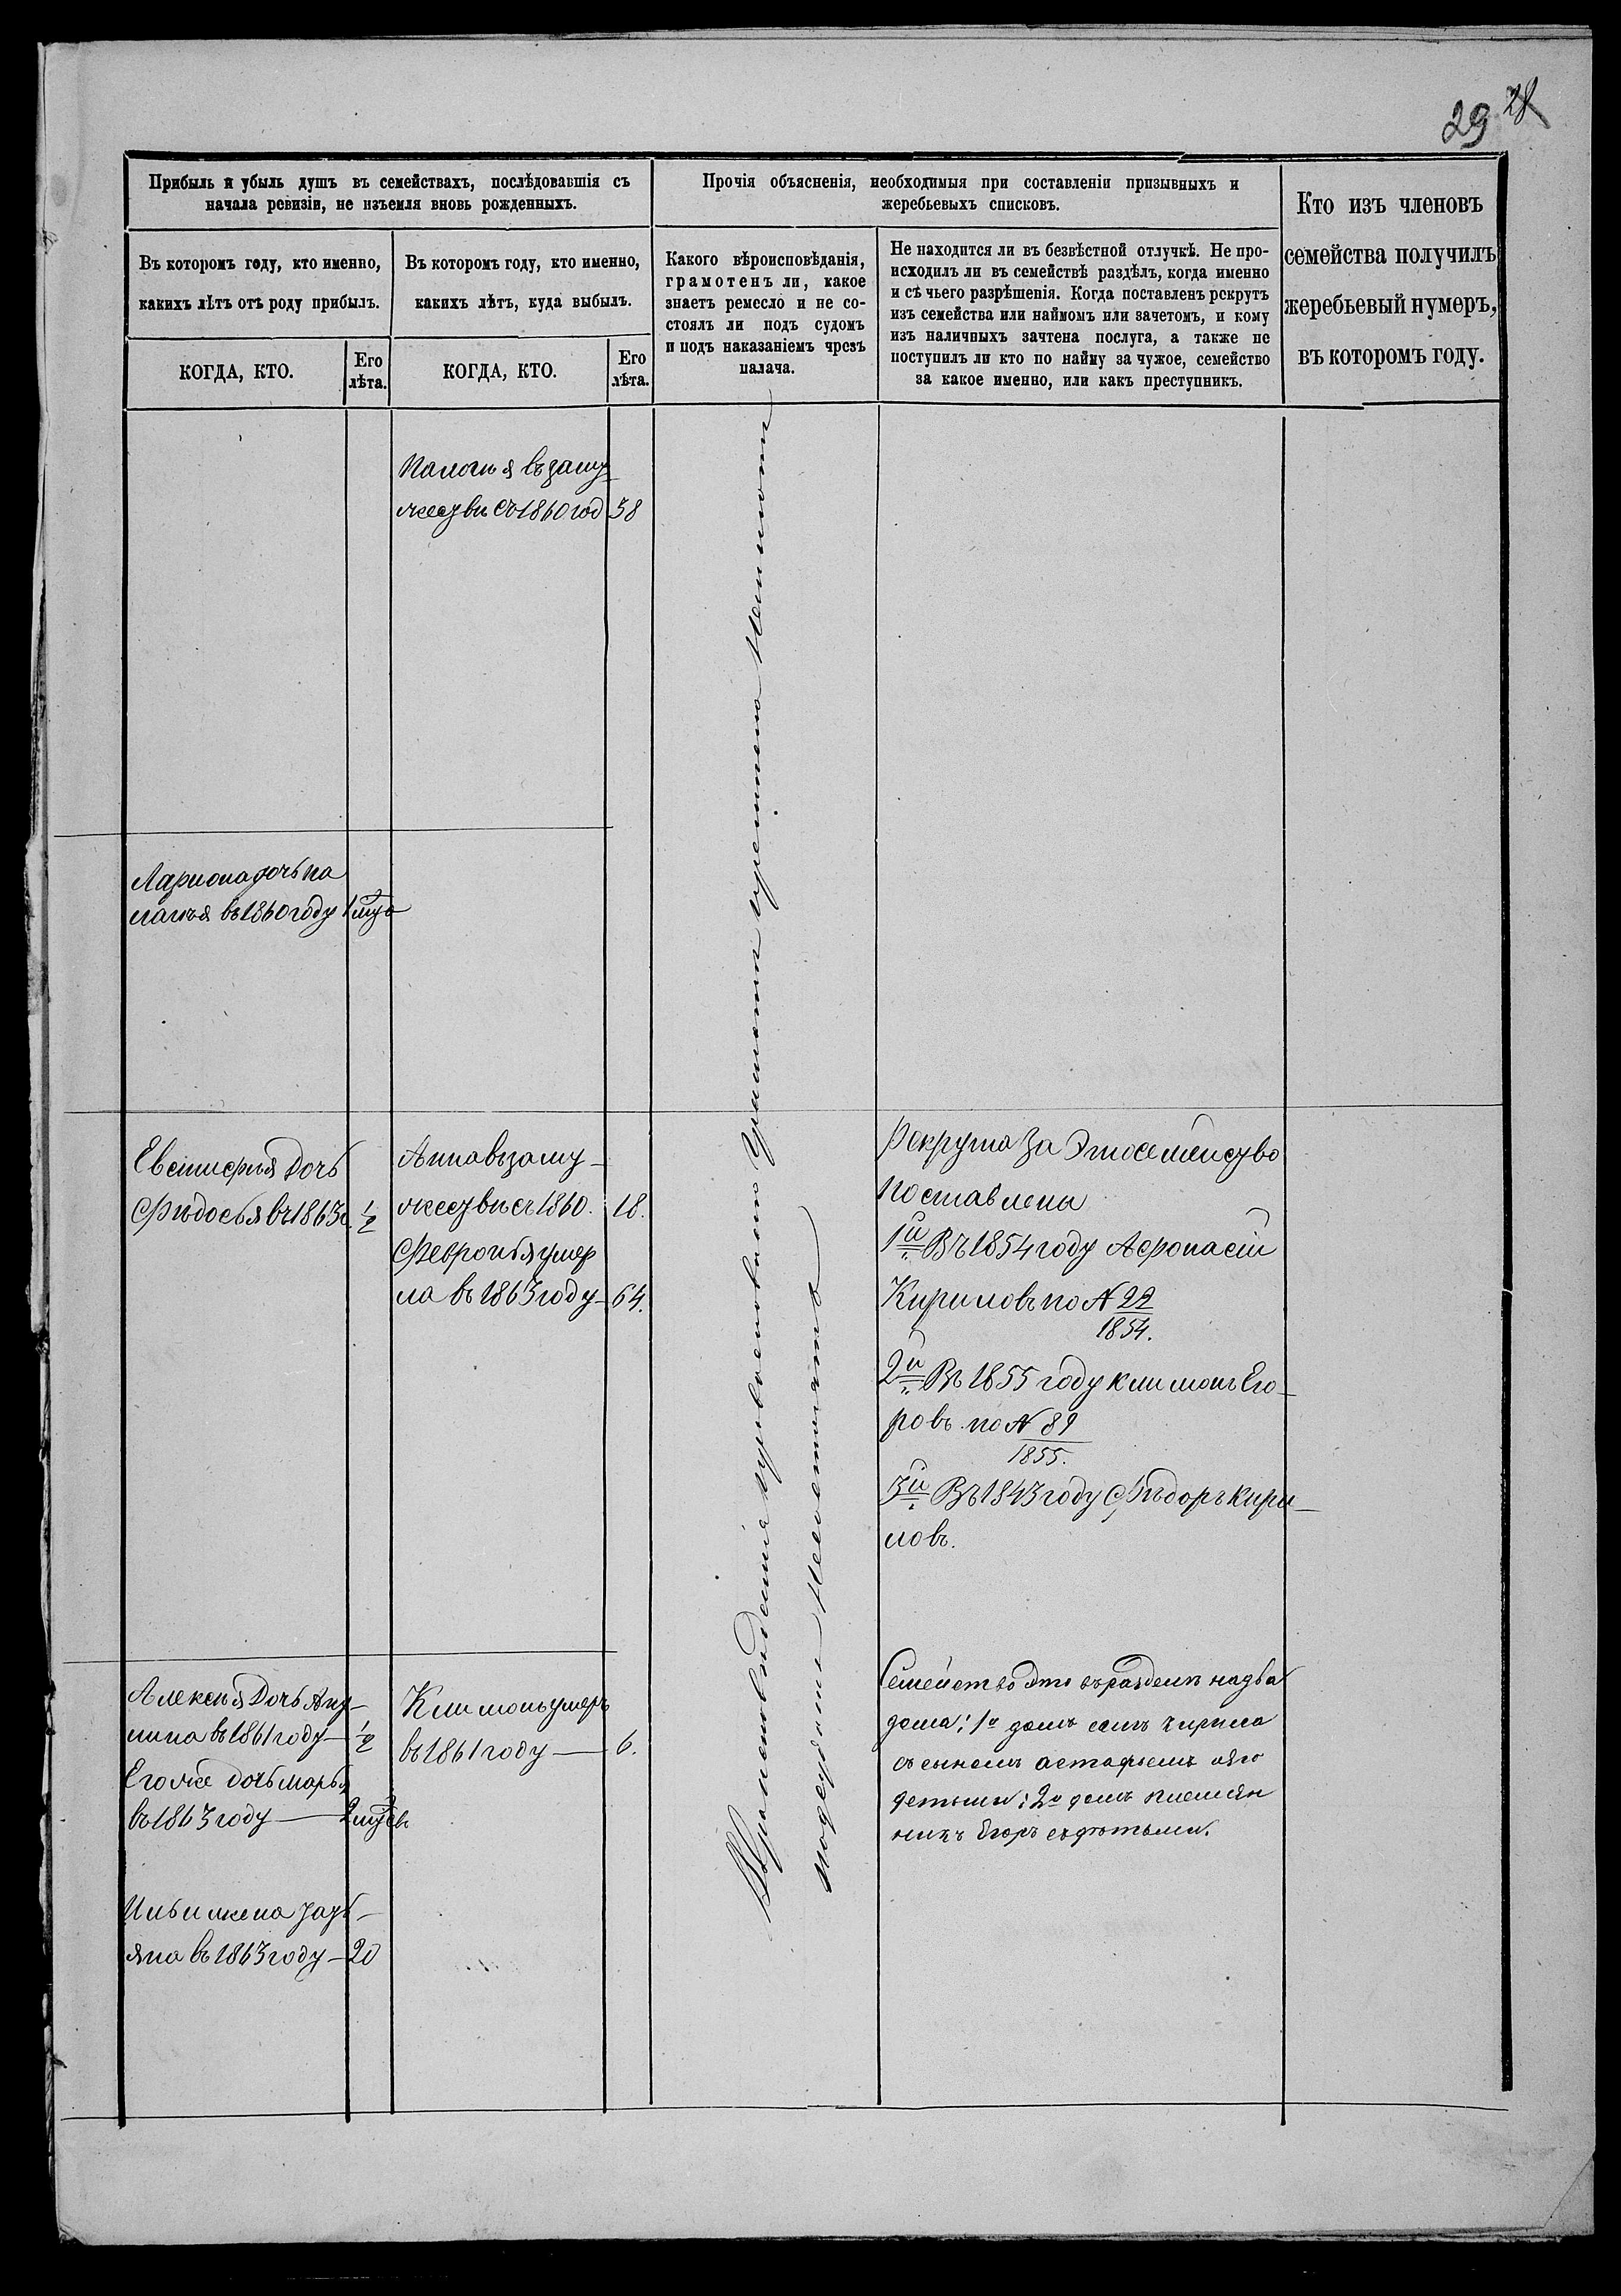 29 28
Прибыль и убыль душъ въ семействахъ, послѣдовавшія съ
начала ревизіи, не изъемля вновь рожденныхъ.
Въ которомъ году, кто именно,
какихъ лѣтъ отъ роду прибылъ.
КОГДА, КТО.
Его
лѣта.
Въ которомъ году, кто именно,
какихъ лѣтъ, куда выбылъ.
КОГДА, КТО.
Его
лѣта.
Прочія объясненія, необходимыя при составленіи призывныхъ и
жеребьевыхъ списковъ.
Какого вѣроисповѣданія,
грамотенъ ли, какое
знаетъ ремесло и не со-
стоялъ ли подъ судомъ
и подъ наказаніемъ чрезъ
палача.
Не находится ли въ безвѣстной отлучкѣ. Не про-
исходилъ ли въ семействѣ раздѣлъ, когда именно
и съ чьего разрѣшенія. Когда поставленъ рекрутъ
изъ семейства или наймомъ или зачетомъ, и кому
изъ наличныхъ зачтена послуга, а также не
поступилъ ли кто по найму за чужое, семейство
за какое именно, или какъ преступникъ.
Кто изъ членовъ
семейства получилъ
жеребьевый нумеръ,
въ которомъ году.
въ заму
жествѣ съ 1860 год 38
Лариона дочь Па
лагѣя въ 1860 году 1
Евстифѣя Дочь
Фѣдосья въ 1863 г. 1/2
Анна въ заму-
жествѣ съ 1860. 18.
Февронья умер
ла въ 1863 году - 64.
Рекрута За Это семѣйство
поставлены
1й Въ 1854 году Афонасій
Кириловъ по № 22
1854.
2й Въ 1855 году Климонъ Его-
ровъ по № 89
1855.
3й Въ 1843 году Фѣдоръ Кири-
ловъ.
Алексѣя Дочь Аку-
лина въ 1861 году - 1/2
Его же дочь Марья
въ 1863 году - 2
Ильи жена
въ 1863 году - 20
Климонъ умеръ
въ 1861 году - 6.
Семейство это въ разделѣ на два
дома: 1й домъ самъ Кирила
съ сыномъ Астафьемъ и его
детьми; 2й домъ племян
никъ Егоръ съ дѣтьми.
Вѣроисповѣданія православнаго грамотѣ
подсудомъ